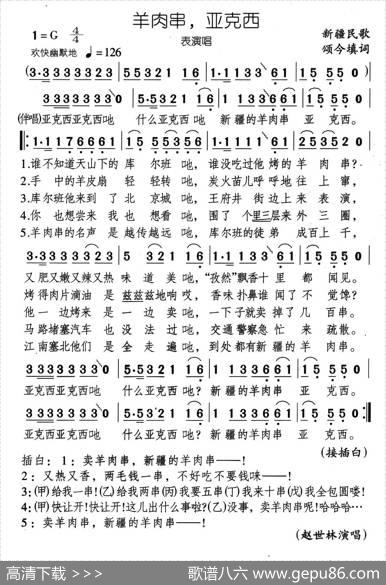 羊肉串，亚克西
表演唱
1=G 4/4
新疆民歌
欢快幽默地 ♩=126
颂今填词
(3·3333323 | 553321 16 | 1·1133 61 | 15 550) |
3333333 0 | 5·5321 16 | 1 133661 | 15 550 |
(伴唱)亚克西亚克西吔 什么亚克西 吔 新疆的羊肉串 亚 克西。
1·1176661 | 15 5535 6 | 1·1133 61 | 15 550 |
1.谁不知道天山下的 库 尔班 吔， 谁没吃过他 烤的 羊 肉串？
2.手 中的羊皮扇 轻 轻转 吔， 炭火苗儿呼 呼地 往 上窜，
3.库尔班他来到了 北 京城 吔， 王府井 街边上 来 表演，
4.你 也想尝来我 也 想看 吔， 围了 个里三层来 外 三圈，
5.羊肉串的名声 是 越传越远 吔， 库尔班的徒弟 成 百上千，
3·3333323 | 553321 16 | 1·1133 61 | 15 550 |
又 肥又嫩又辣又热 味 道 美 吔， “孜然”飘香十 里 都 闻见。
烤 得肉片滴油 是 兹兹兹地响 哎， 香味 扑鼻谁 闻了 不 觉馋？
他 一 边烤来 是 一 边 卖 吔， 一下 子就卖 掉了 几 百串。
马 路堵塞汽车 也 没 法 过 吔， 交通 警察急 忙 来 疏散。
江 南塞北他们 是 全 走 遍 吔， 到处 都有新 疆的 羊 肉串。
3333333 0 | 5·5321 16 | 1 133661 | 15 550 |
亚克西亚克西吔 什么亚克西 吔？ 新疆的羊肉串 亚 克西。
3333333 0 | 5·5321 16 | 1 133661 | 15 550 :|
亚克西亚克西吔 什么亚克西 吔？ 新疆的羊肉串 亚 克西。
(接插白)
插白：1：卖羊肉串，新疆的羊肉串——！
2：又热又香，两毛钱一串，不好吃不要钱咪——！
3：(甲)给我一串！(乙)给我两串(丙)我要五串(丁)我来十串(戊)我全包圆喽！
4：(甲)快让开！快让开！这儿出什么事啦？(乙)没事，卖羊肉串呢！哈哈哈…
5：卖羊肉串，新疆的羊肉串——！
(赵世林演唱)
高清下载 >>>
歌谱八六 www.gepu86.com